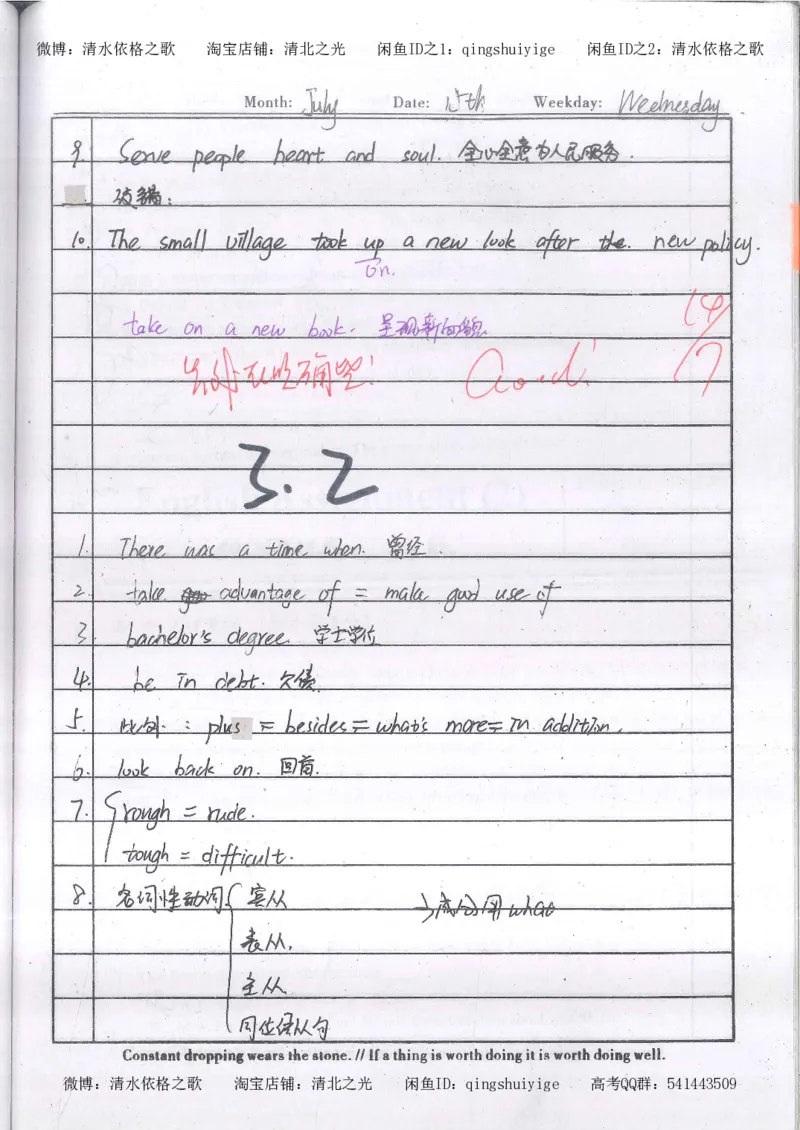 微博：清水依格之歌 淘宝店铺：清北之光 闲鱼ID之1：qingshuiyige 闲鱼ID之2：清水依格之歌
Month: July Date: 15th Weekday: Wednesday
9. Serve people heart and soul. 全心全意为人民服务.
改错：
10. The small village took up a new look after the new policy.
on.
take on a new book. 呈现新面貌.
Good!
3.2
1. There was a time when. 曾经
2. take advantage of = make good use of
3. bachelor's degree. 学士学位
4. be in debt. 欠债.
5. 此外: plus = besides = what's more = in addition.
6. look back on. 回首.
7. rough = rude.
tough = difficult.
8. 名词性动词 宾从 →成分用what
表从.
主从
同位语从句
Constant dropping wears the stone. // If a thing is worth doing it is worth doing well.
微博：清水依格之歌 淘宝店铺：清北之光 闲鱼ID：qingshuiyige 高考QQ群：541443509